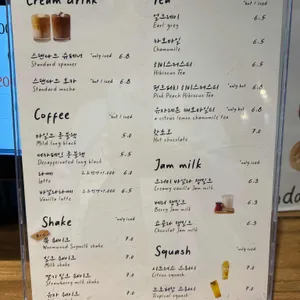 Cream drink
스탠다드 슈페너 *only iced 6.8
Standard spanner
스탠다드 모카 *only iced 6.8
Standard mocha
Coffee
*hot / iced
마일드 롱블랙 5.0
Mild long black
디카페인 롱블랙 5.5
Decappeinated long black
라떼
Latte
바닐라라떼 6.5
Vanilla latte
Shake
*only iced
쑥 쉐이크 7.0
Wormwood Injeolmi shake
밀크 쉐이크 7.0
Milk shake
딸기 밀크 쉐이크 7.0
Strawberry milk shake
Tea
*hot / iced
얼그레이 6.5
Earl grey
카모마일 6.5
Chamomile
히비스커스티 6.5
Hibiscus Tea
핑크피치 히비스커스티 *only hot 6.8
Pink Peach Hibiscus Tea
6.8
a citrus lemon chamomile tea
핫초코 7.0
Hot chocolate
Jam milk
*only iced
6.3
Creamy vanilla Jam milk
베리 잼밀크 6.3
Berry Jam milk
초콜릿 잼밀크 6.3
Chocolat Jam milk
Squash
*only iced
시트러스 스쿼시 7.0
Citrus squash
트로피칼 스쿼시 7.0
Tropical squash